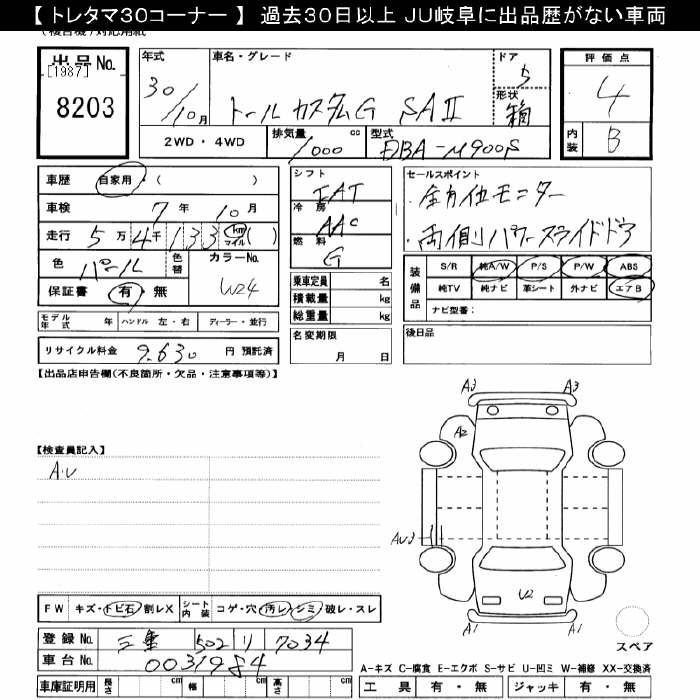 【 トレタマ30コーナー 】 過去30日以上 JU岐阜に出品歴がない車両
出品No.
[1987]
8203
年式
30/10月
車名・グレード
トール カスタムG SAⅡ
ドア
5
形状
箱
評価点
4
内装
B
2WD・4WD
排気量
1000 cc
型式
DBA-M900S
車歴 自家用・( )
車検 7年 10月
走行 5万4千133 km マイル ( )
色 パール
色替
カラーNo.
W24
保証書 有・無
シフト
FAT
冷房
AAC
燃料
G
乗車定員 名
積載量 kg
総重量 kg
名変期限
月 日
セールスポイント
・全方位モニター
・両側パワースライドドア
装備品
S/R 純A/W P/S P/W ABS
純TV 純ナビ 革シート 外ナビ エアB
ナビ型番：
後日品
モデル年式 年 ハンドル 左・右 ディーラー・並行
リサイクル料金 9,630 円 預託済
【出品店申告欄(不良箇所・欠品・注意事項等)】
【検査員記入】
A.U
A3 A3
A2
AU3
U2
A1 A1
FW キズ・トビ石・割レX シート内装 コゲ・穴・汚レ・シミ・破レ・スレ
スペア
登録No. 三重 502 リ 7034
車台No. 0031984
車庫証明用 長さ cm 幅 cm 高さ cm
A-キズ C-腐食 E-エクボ S-サビ U-凹ミ W-補修 XX-交換済
工具 有・無 ジャッキ 有・無